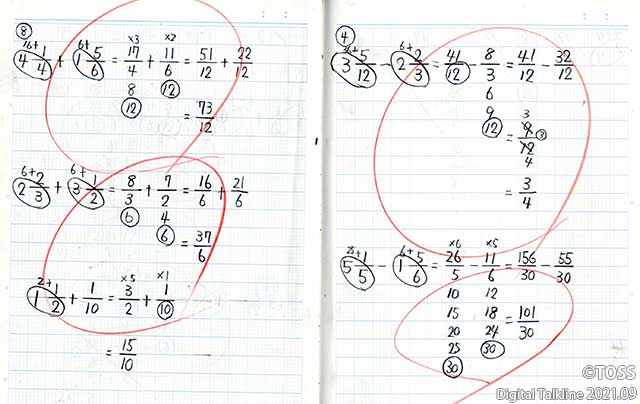 ⑧
16+ 6+ ×3 ×2
4 1/4 + 1 5/6 = 17/4 + 11/6 = 51/12 + 22/12
8 ⑫
⑫
= 73/12
6+ 6+
2 2/3 + 3 1/2 = 8/3 + 7/2 = 16/6 + 21/6
⑥ 4
⑥
= 37/6
2+ ×5 ×1
1 1/2 + 1/10 = 3/2 + 1/⑩
= 15/10
④
36+ 6+
3 5/12 - 2 2/3 = 41/⑫ - 8/3 = 41/12 - 32/12
6
9
⑫ = 9/12 3 ③ 4
= 3/4
25+ 6+ ×6 ×5
5 1/5 - 1 5/6 = 26/5 - 11/6 = 156/30 - 55/30
10 12
15 18 = 101/30
20 24
25 ㉚
㉚
©TOSS
Digital Talkline 2021.09